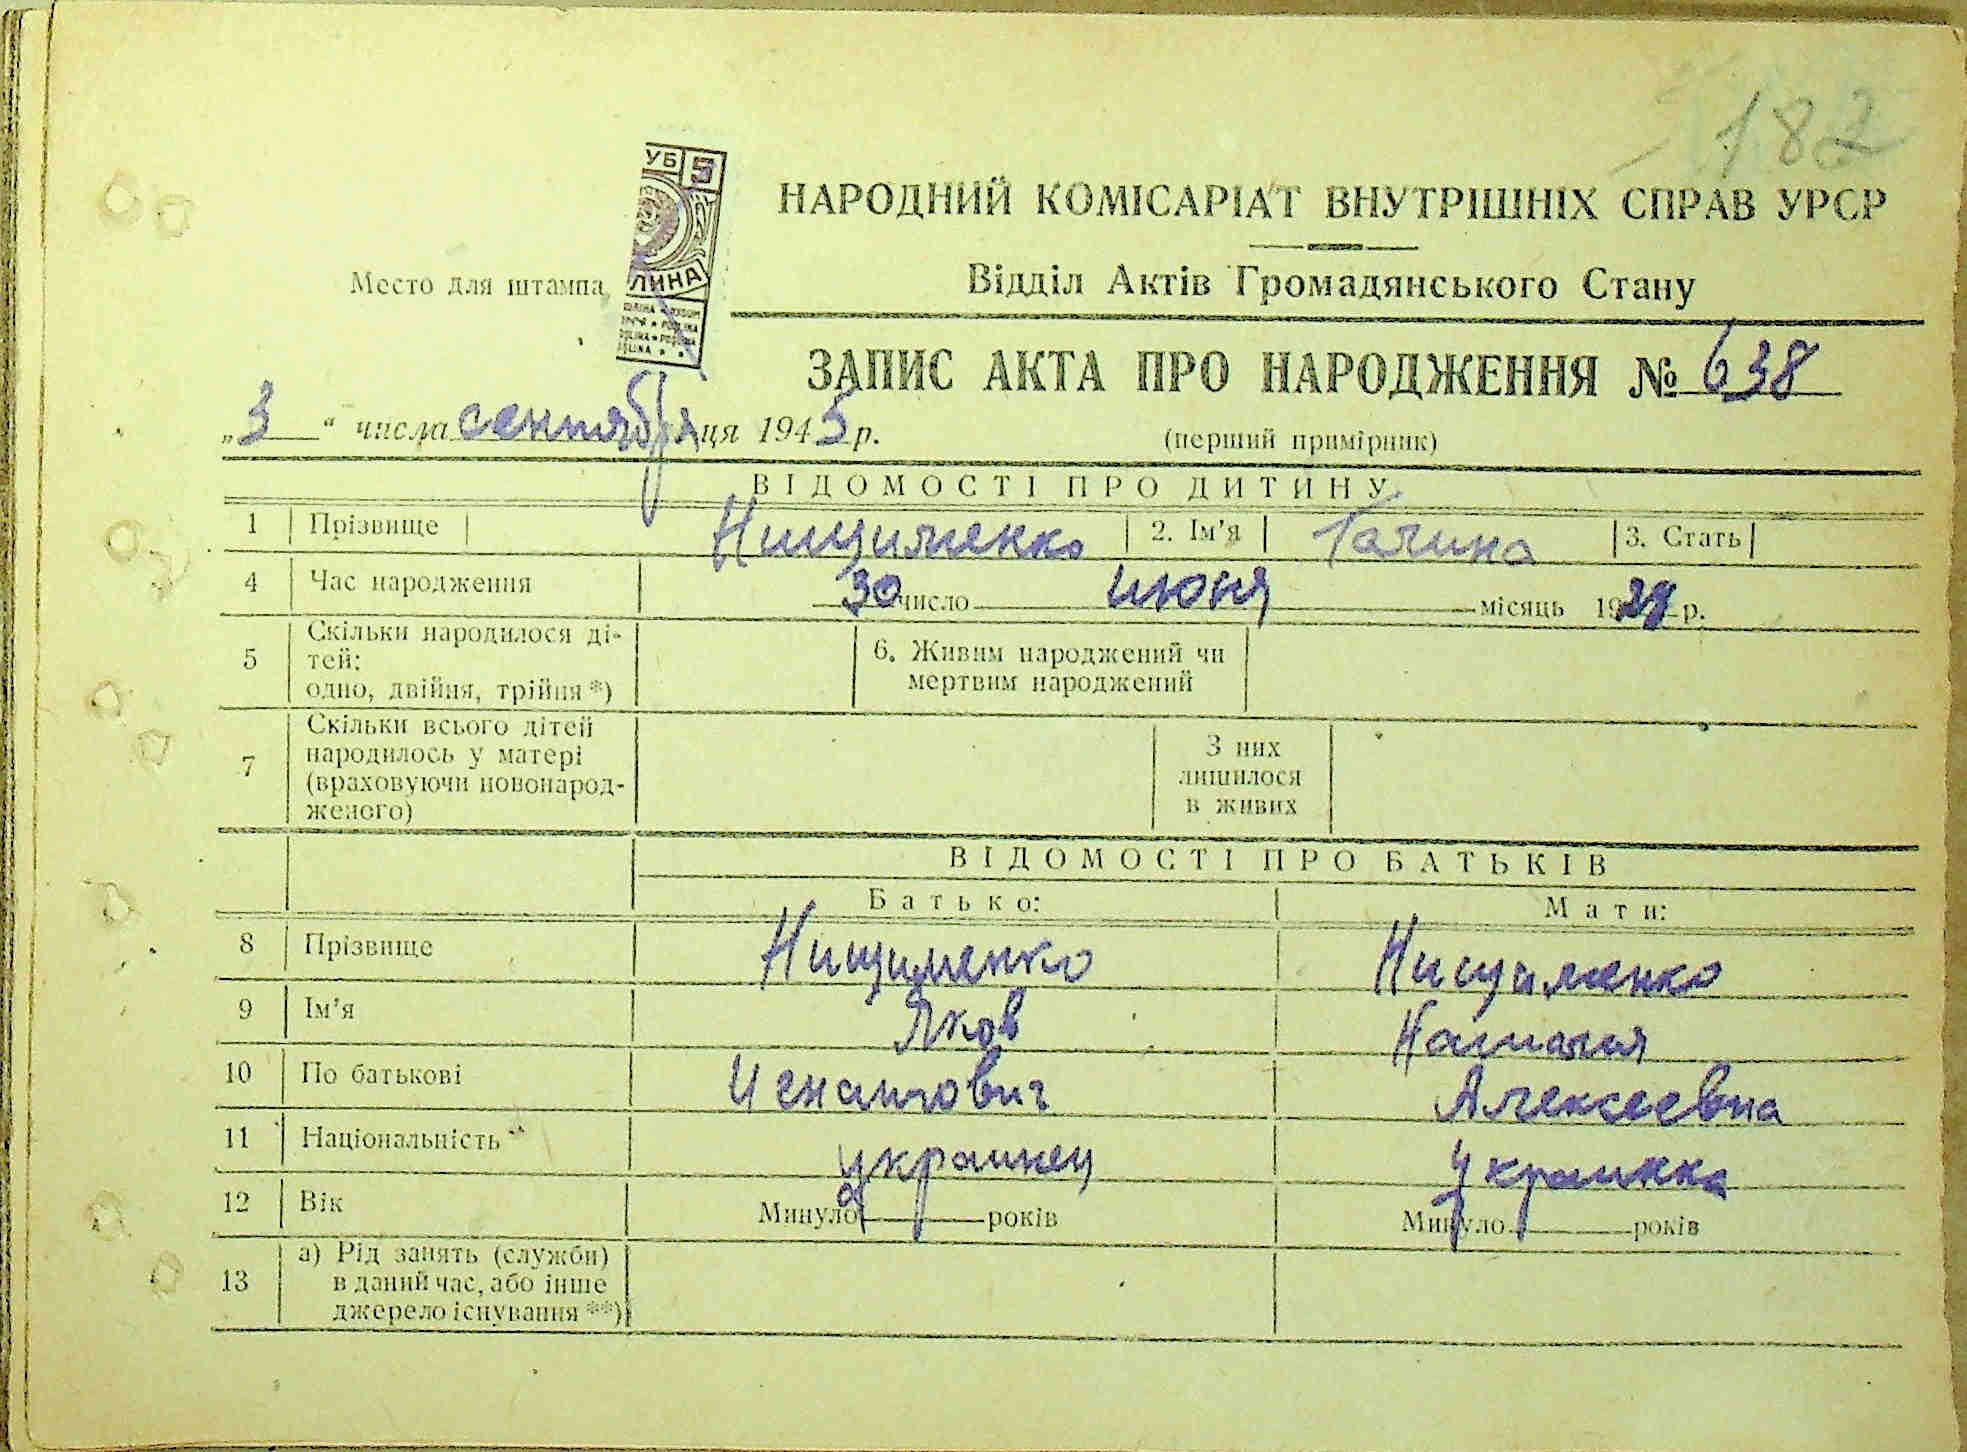 182
УБ 5
ЛИНА
НАРОДНИЙ КОМІСАРІАТ ВНУТРІШНІХ СПРАВ УРСР
Место для штампа
Відділ Актів Громадянського Стану
ЗАПИС АКТА ПРО НАРОДЖЕННЯ № 638
„3“ числа сентября ця 1945 р.
(перший примірник)
ВІДОМОСТІ ПРО ДИТИНУ
1 Прізвище Нищименко 2. Ім'я Галина 3. Стать
4 Час народження 30 число июня місяць 19 р.
5 Скільки народилося ді-
тей:
одно, двійня, трійня *)
6. Живим народжений чи
мертвим народжений
7 Скільки всього дітей
народилось у матері
(враховуючи новонарод-
женого)
З них
лишилося
в живих
ВІДОМОСТІ ПРО БАТЬКІВ
Батько: Мати:
8 Прізвище Нищименко Нищименко
9 Ім'я Яков Наталия
10 По батькові Игнатович Алексеевна
11 Національність украинец украинка
12 Вік Минуло років Минуло років
13 а) Рід занять (служби)
в даний час, або інше
джерело існування **)